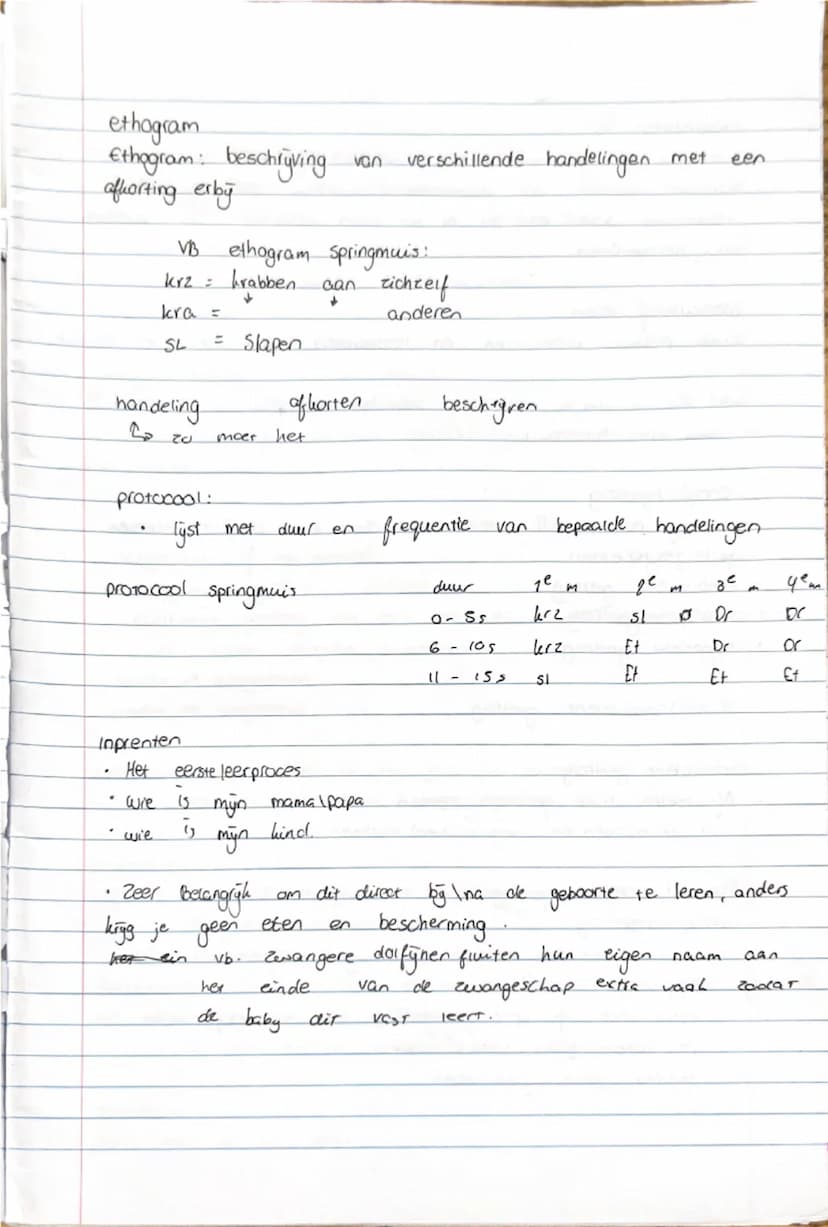 ethogram
Ethogram: beschrijving van verschillende handelingen met een
afkorting erbij
VB ethogram springmuis:
krz = krabben aan zichzelf
kra = ↓ ↓ anderen
SL = Slapen
handeling afkorten beschrijven
↳ zo moet het
protocool:
• lijst met duur en frequentie van bepaalde handelingen
protocool springmuis duur 1e m 2e m 3e m 4e m
0 - 5s krz sl Dr Dr
6 - 10s krz Et Dr Dr
11 - 15s sl Et Et Et
Inprenten
• Het eerste leerproces
• wie is mijn mama\papa
• wie is mijn kind.
• Zeer belangrijk om dit direct bij\na de geboorte te leren, anders
krijg je geen eten en bescherming.
vb. Zwangere dolfijnen fluiten hun eigen naam aan
het einde van de zwangeschap extra vaak zodat
de baby dit vast leert.